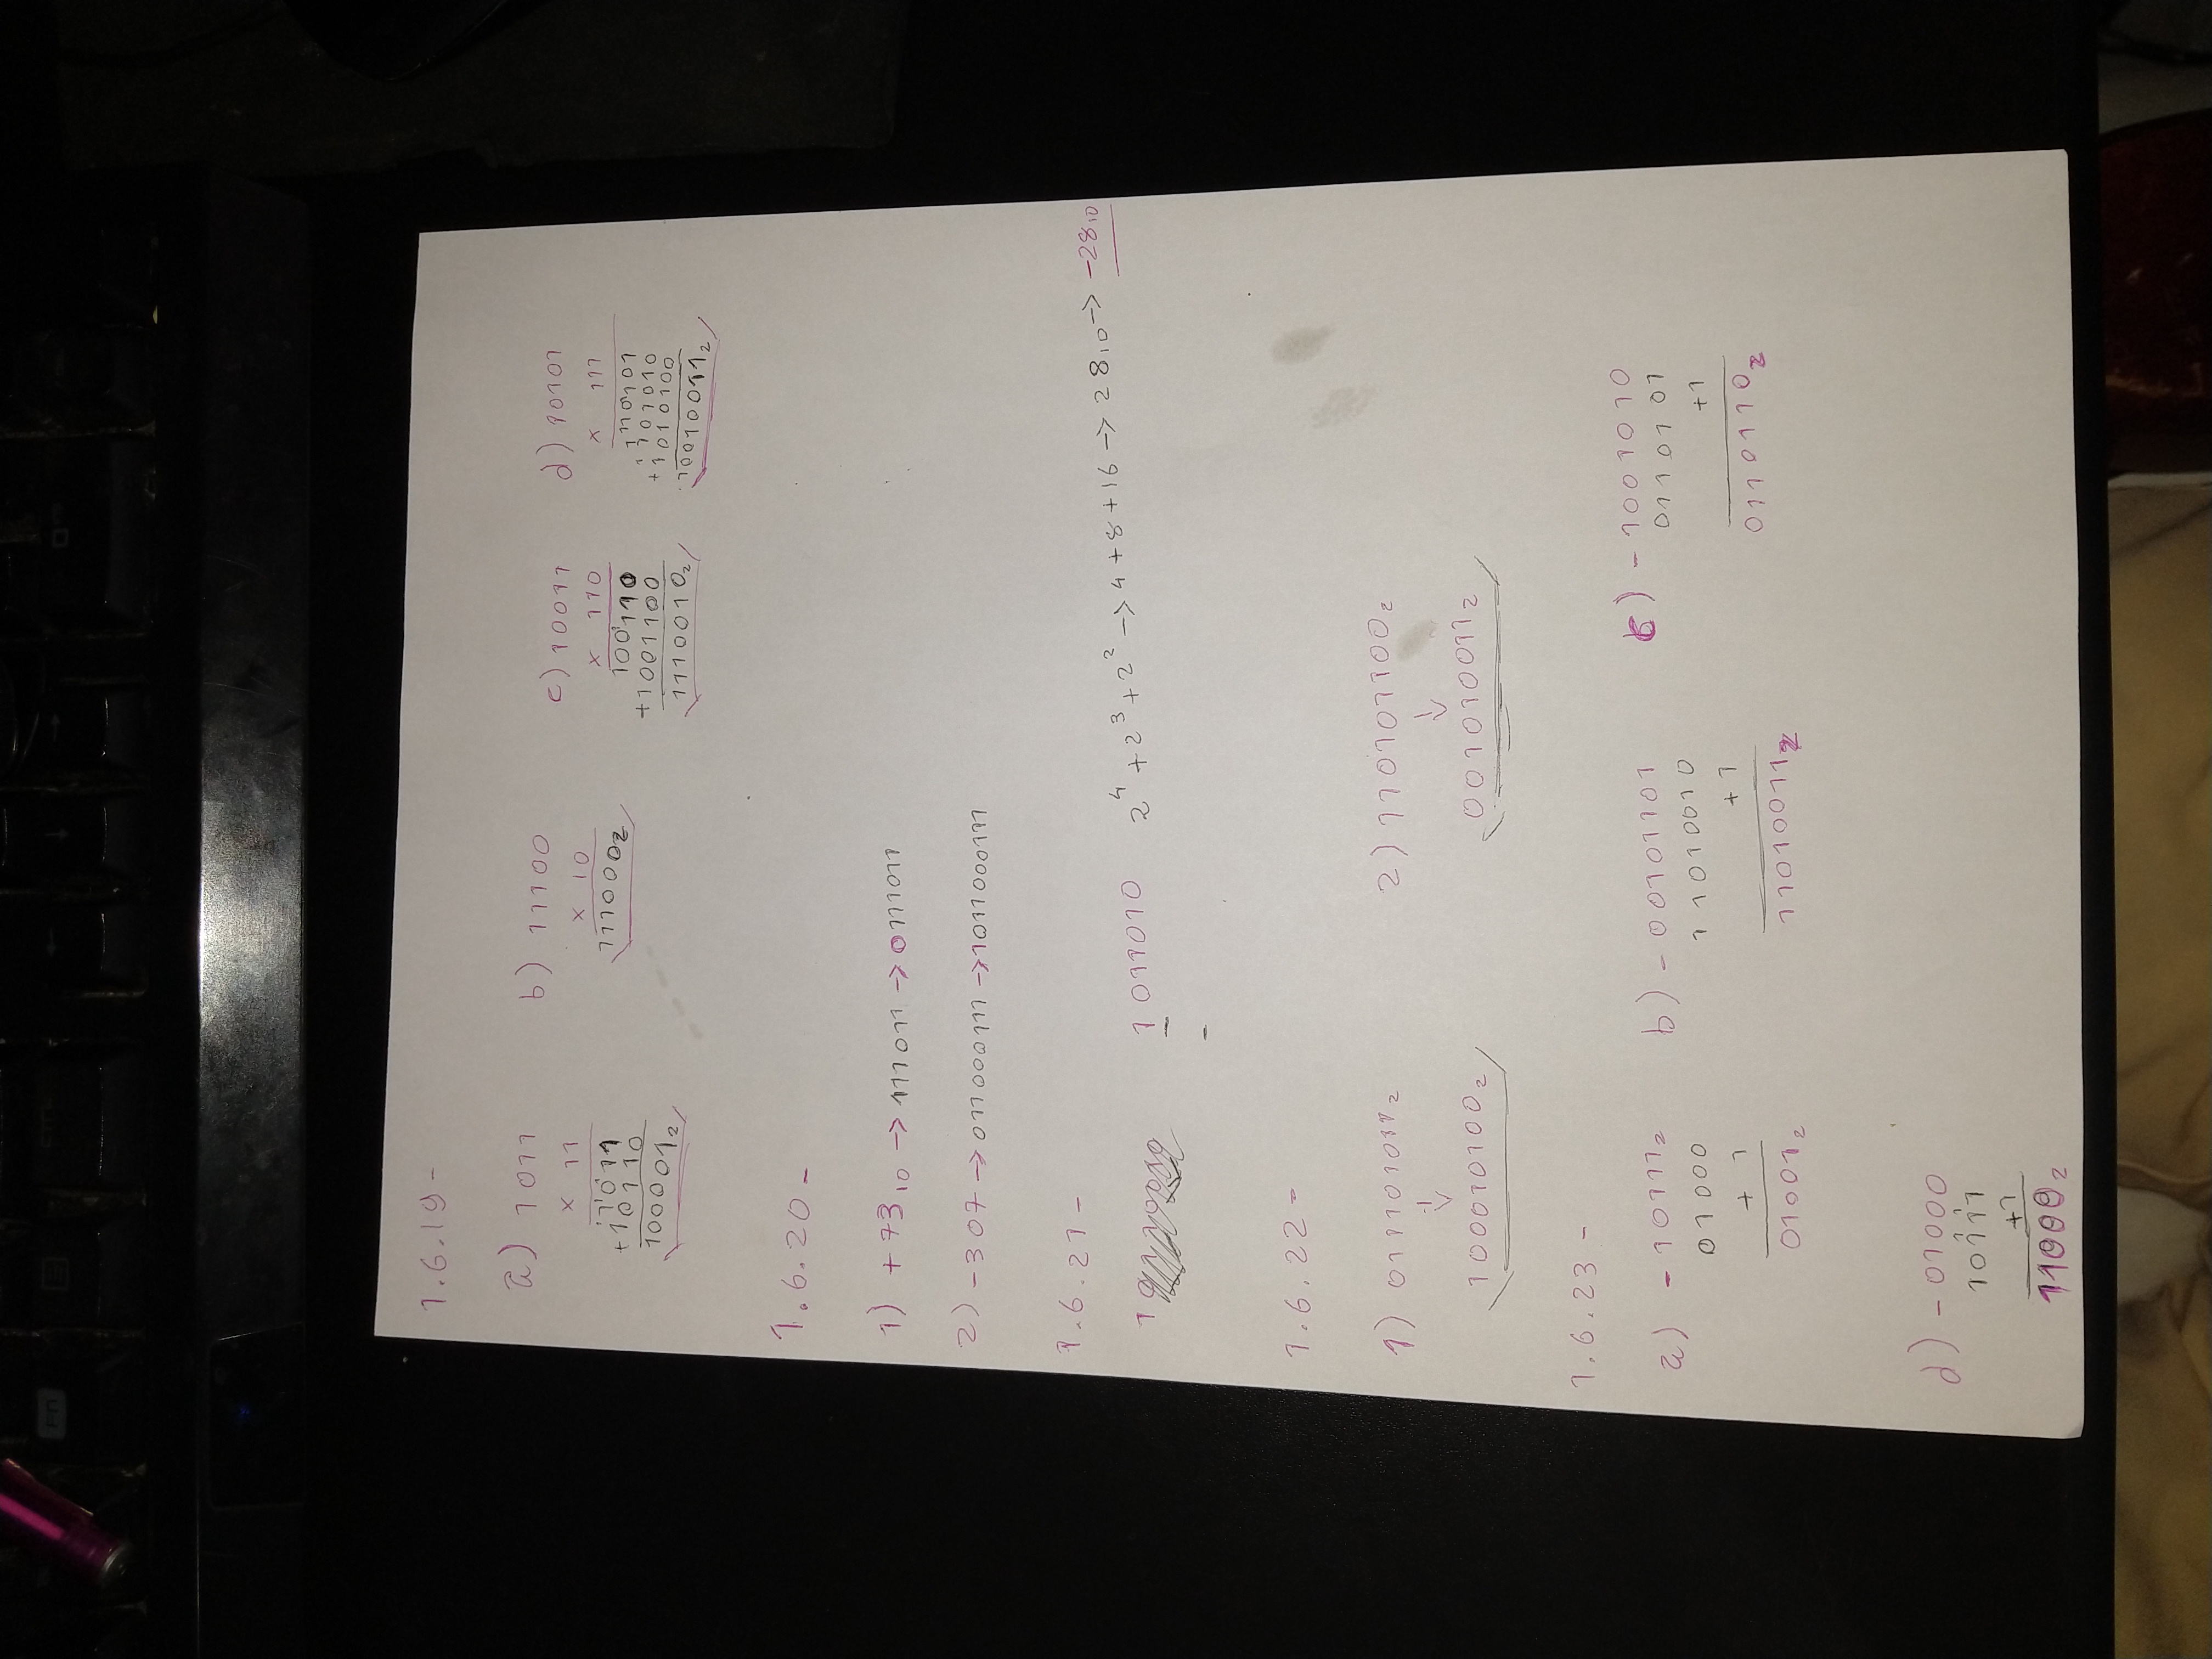 1.6.19-
a) 1011
x 11
11011
+10110
100001₂
b) 11100
x 10
111000₂
c) 10011
x 110
100110
+1001100
1110010₂
d) 10101
x 111
110101
101010
+1010100
10010011₂
1.6.20-
1) +73₁₀ → 111011 → 0111011
2) -307 → 011000111 → 1011000111
1.6.21-
1 1011010 2⁴+2³+2² → 4+8+16 → 28₁₀ → -28₁₀
1.6.22-
1) 011101011₂ 2) 110101100₂
↓ ↓
100010100₂ 001010011₂
1.6.23-
a) -10111₂
01000
+ 1
01001₂
b) -00101101
11010010
+1
11010011₂
c) -1001010
0110101
+1
0110110₂
d) -01000
10111
+1
11000₂